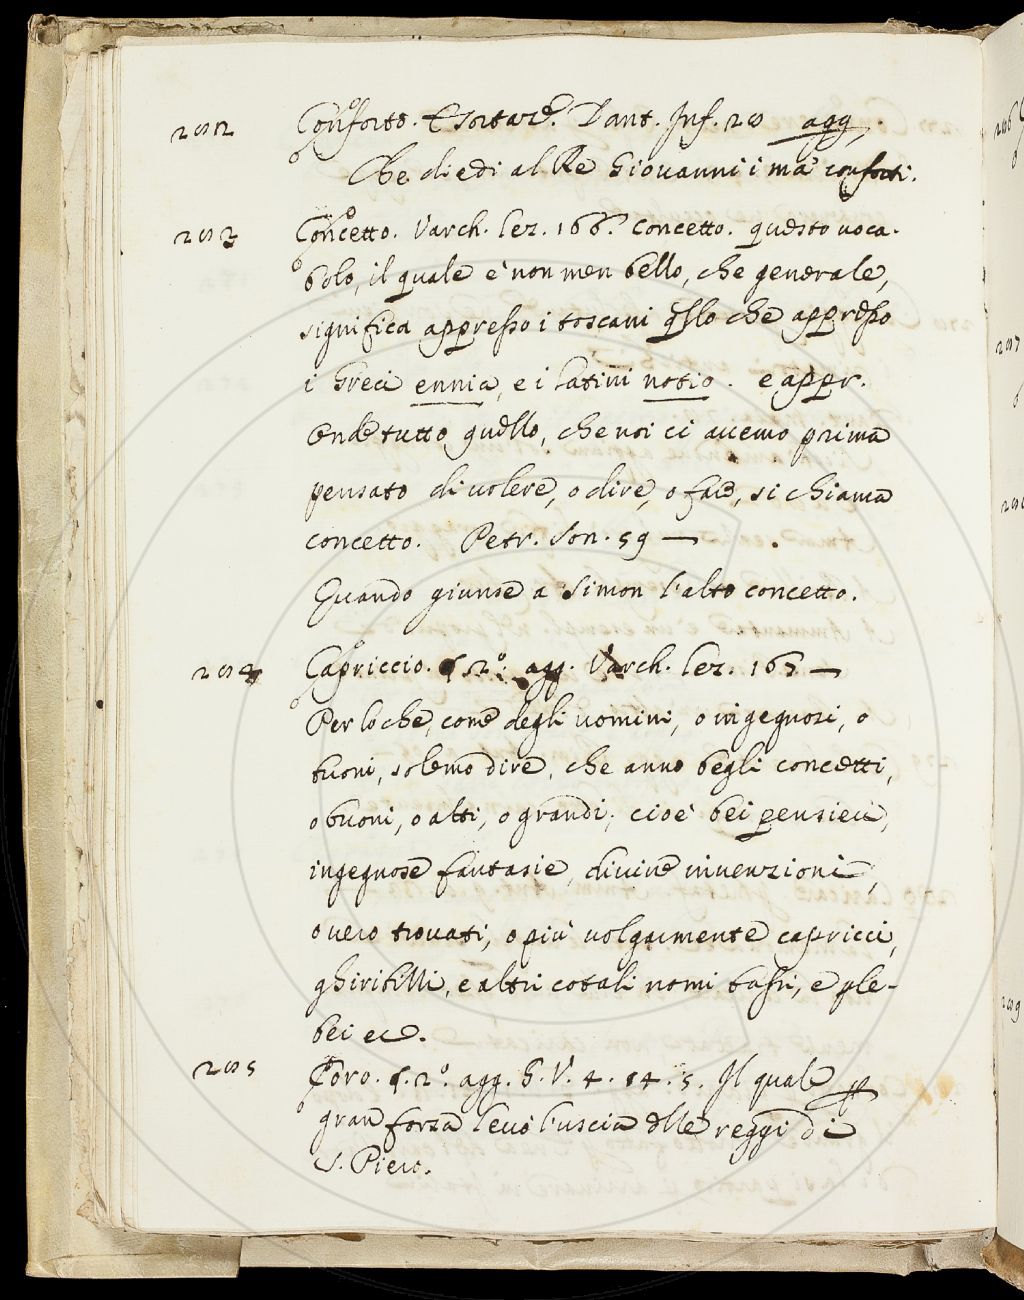 2012 Conforto. Esortare. Dant. Inf. 28 agg.
Che diedi al Re Giovanni i ma' conforti.
2013 Concetto. Varch. lez. 166. Concetto. questo voca-
bolo, il quale è non men bello, che generale,
significa appresso i toscani qllo che appresso
i Greci ennia, e i latini notio. e appr.
onde tutto quello, che noi ci avemo prima
pensato di volere, o dire, o fare, si chiama
concetto. Petr. Son. 59 —
Quando giunse a Simon l'alto concetto.
2014 Capriccio. §. 2º. agg. Varch. lez. 167 —
Per lo che, come degli uomini, o ingegnosi, o
buoni, solemo dire, che anno begli concetti,
o buoni, o alti, o grandi; cioè bei pensieri,
ingegnose fantasie, divine invenzioni,
overo trovati, o più volgarmente capricci,
ghiribilli, e altri cotali nomi bassi, e ple-
bei ec.
2015 Coro. §. 2º. agg. G. V. 4. 14. 5. Il quale p
gran forza levò l'uscia dlle reggi di
S. Piero.